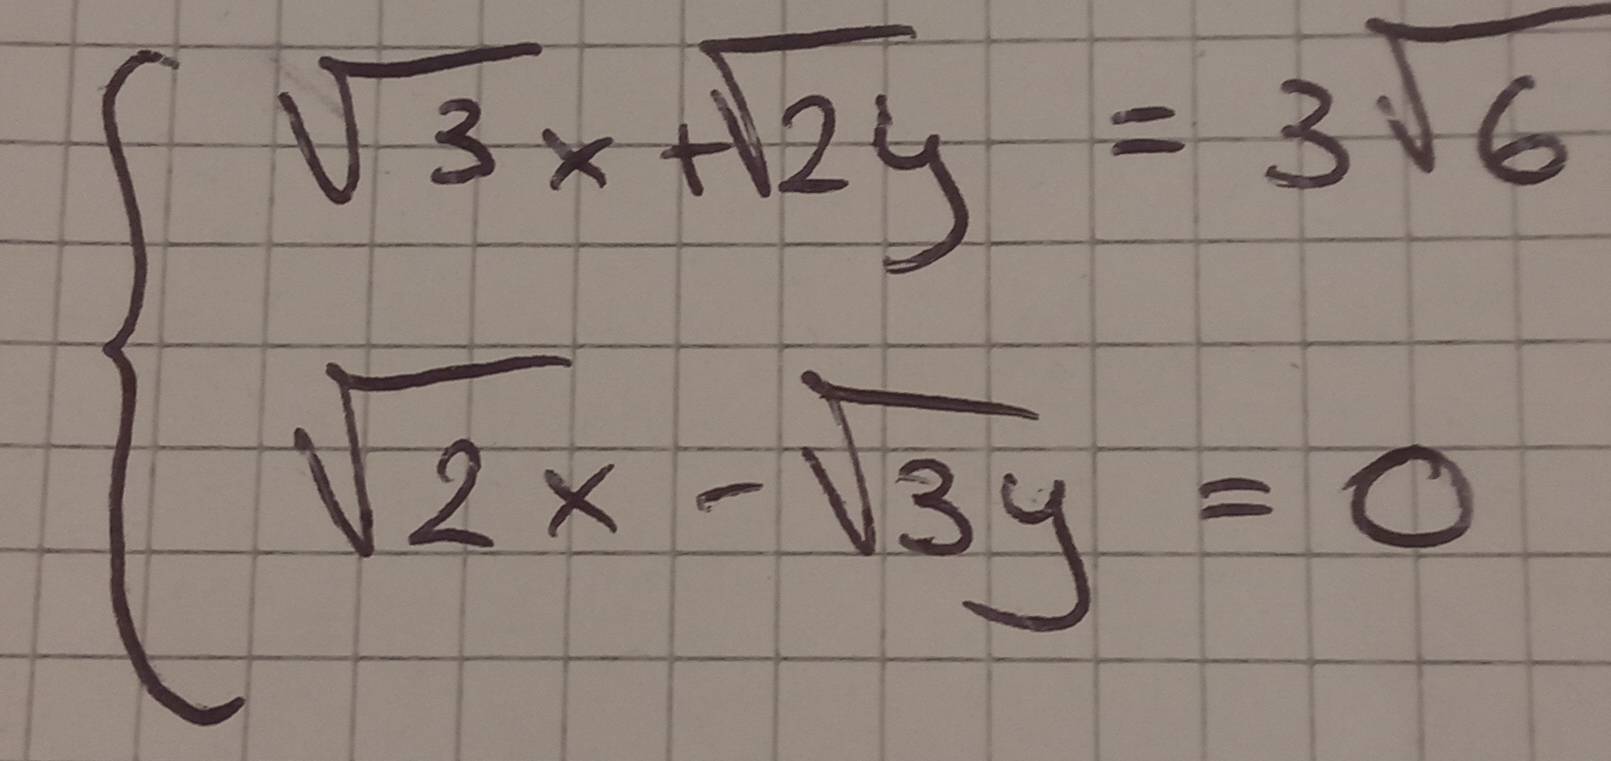 √3x + √2y = 3√6
√2x - √3y = 0